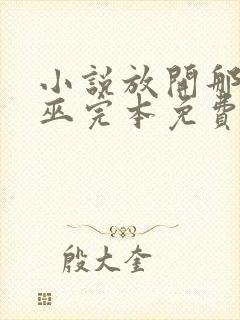 小說放開那
巫完本免費
殷大奎